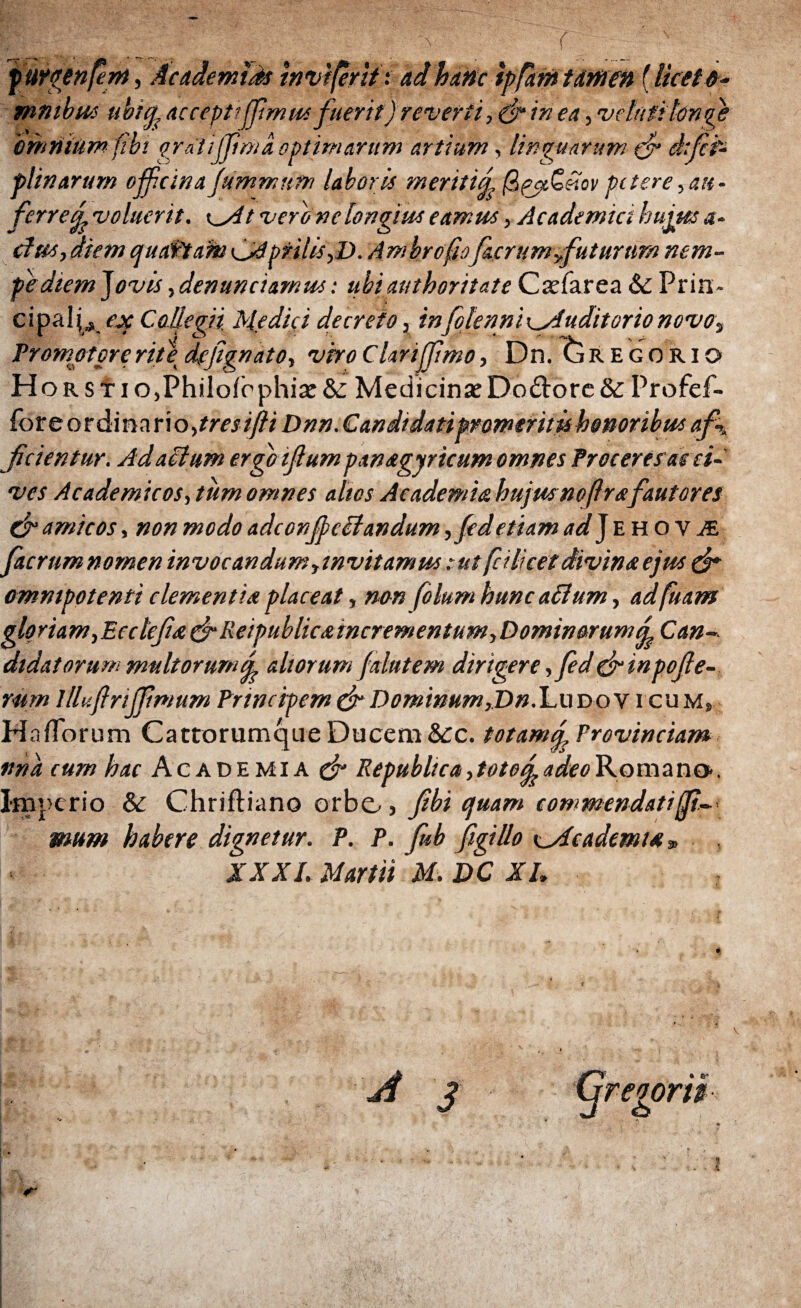 purgenſem, Academias inviſerit: ad hanc ipſam tamen (licet o-
mnibus ubiq́; acceptiſſimus fuerit) reverti, & in ea, veluti longè
omnium ſibi gratiſſimâ optimarum artium, linguarum & diſci-
plinarum officina ſummum laboris meritiq́; βραβεῖον petere, au-
ferreq́; voluerit. At verò ne longius eamus, Academici hujus a-
ctus, diem quartam Aprilis, D. Ambroſio ſacrum, futurum nem-
pe diem Jovis, denunciamus: ubi authoritate Cæſarea & Prin-
cipali, ex Collegii Medici decreto, in ſolenni Auditorio novo,
Promotore ritè deſignato, viro Clariſſimo, Dn. GREGORIO
HORSTIO, Philoſophiæ & Medicinæ Doctore & Profeſ-
ſore ordinario, tres iſti Dnn. Candidati promeritis honoribus af-
ficientur. Ad actum ergò iſtum panægyricum omnes Proceres ac ci-
ves Academicos, tùm omnes alios Academiæ hujus noſtræ fautores
& amicos, non modo ad conſpectandum, ſed etiam ad JEHOVÆ
ſacrum nomen invocandum, invitamus: ut ſcilicet divinæ ejus &
omnipotenti clementiæ placeat, non ſolum hunc actum, ad ſuam
gloriam, Eccleſiæ & Reipublicæ incrementum, Dominorumq́; Can-
didatorum multorumq́; aliorum ſalutem dirigere, ſed & in poſte-
rum Illuſtriſſimum Principem & Dominum, Dn. LUDOVICUM,
Haſſorum Cattorumque Ducem &c. totamq́; Provinciam
unà cum hac ACADEMIA & Republica, totoq́; adeo Romano
Imperio & Chriſtiano orbe, ſibi quam commendatiſſi-
mum habere dignetur. P. P. ſub ſigillo Academiæ,
XXXI. Martii M. DC XI.
A 3 Gregorii